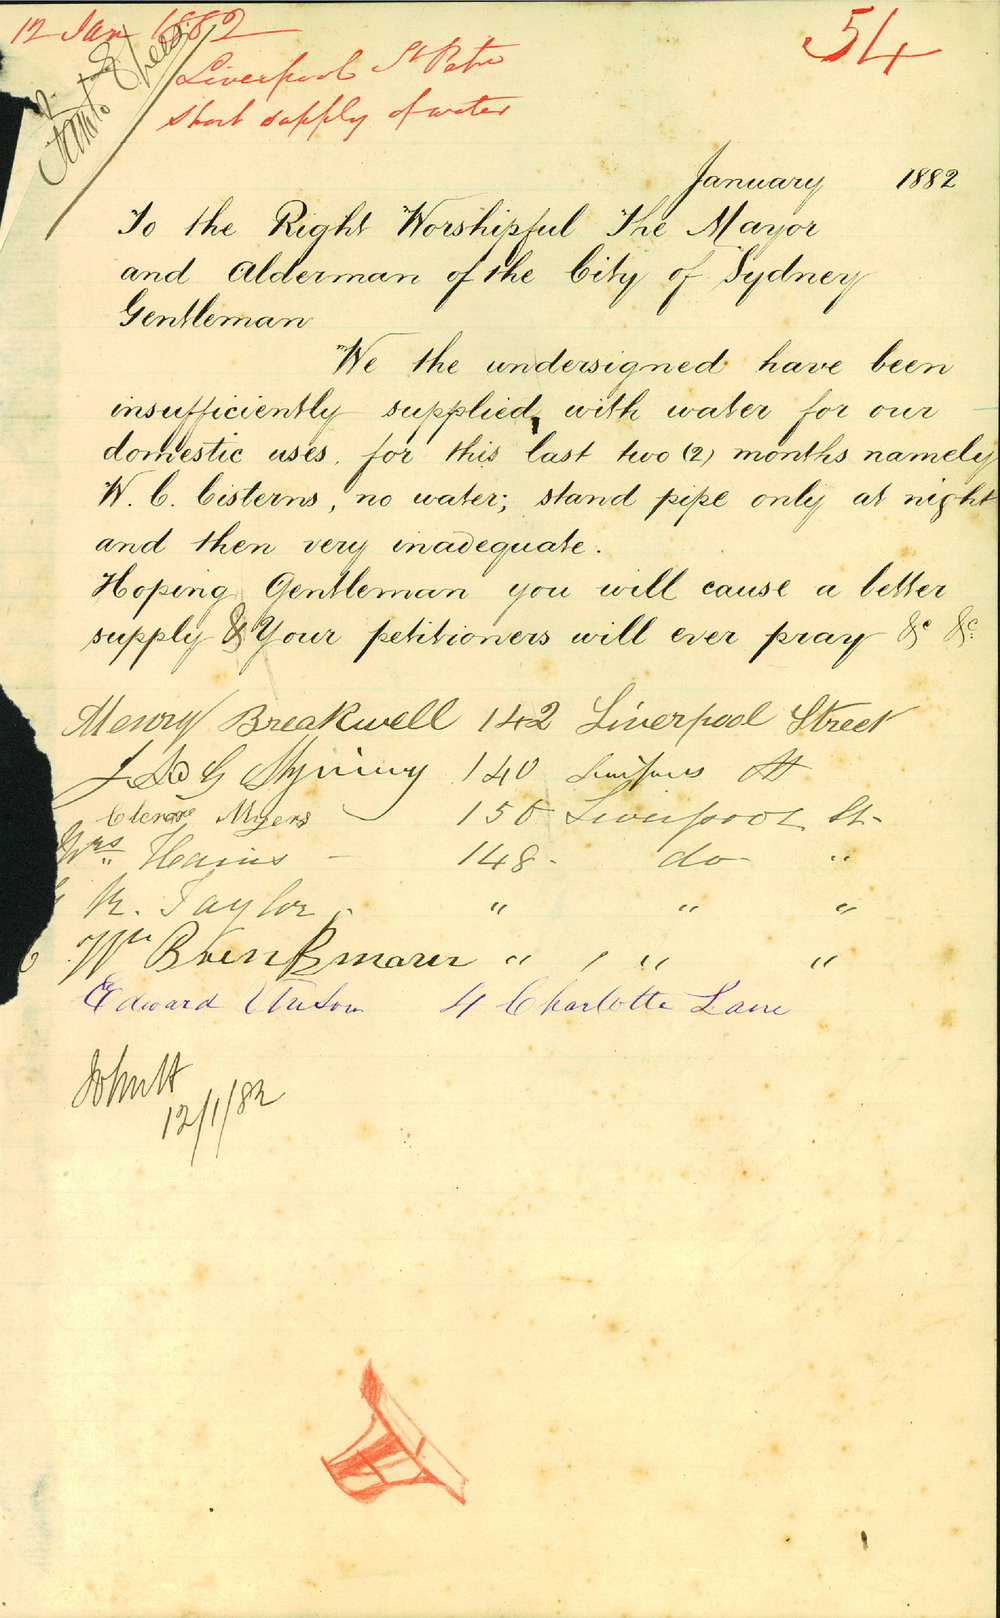 12 Jan 1882
54
Liverpool St Petn
short supply of water
January 1882
To the Right Worshipful The Mayor
and Alderman of the City of Sydney
Gentleman
We the undersigned have been
insufficiently supplied, with water for our
domestic uses. for this last two (2) months namely
W. C. Cisterns, no water; stand pipe only at night
and then very inadequate.
Hoping Gentleman you will cause a better
supply & Your petitioners will ever pray &c &c.
Henry Breakwell 142 Liverpool Street
140 St
Myers 150 Liverpool St.
Mrs Hains - 148 - do "
R. Taylor. " " "
Wm " , " "
Edward 4 Charlotte Lane
12/1/82